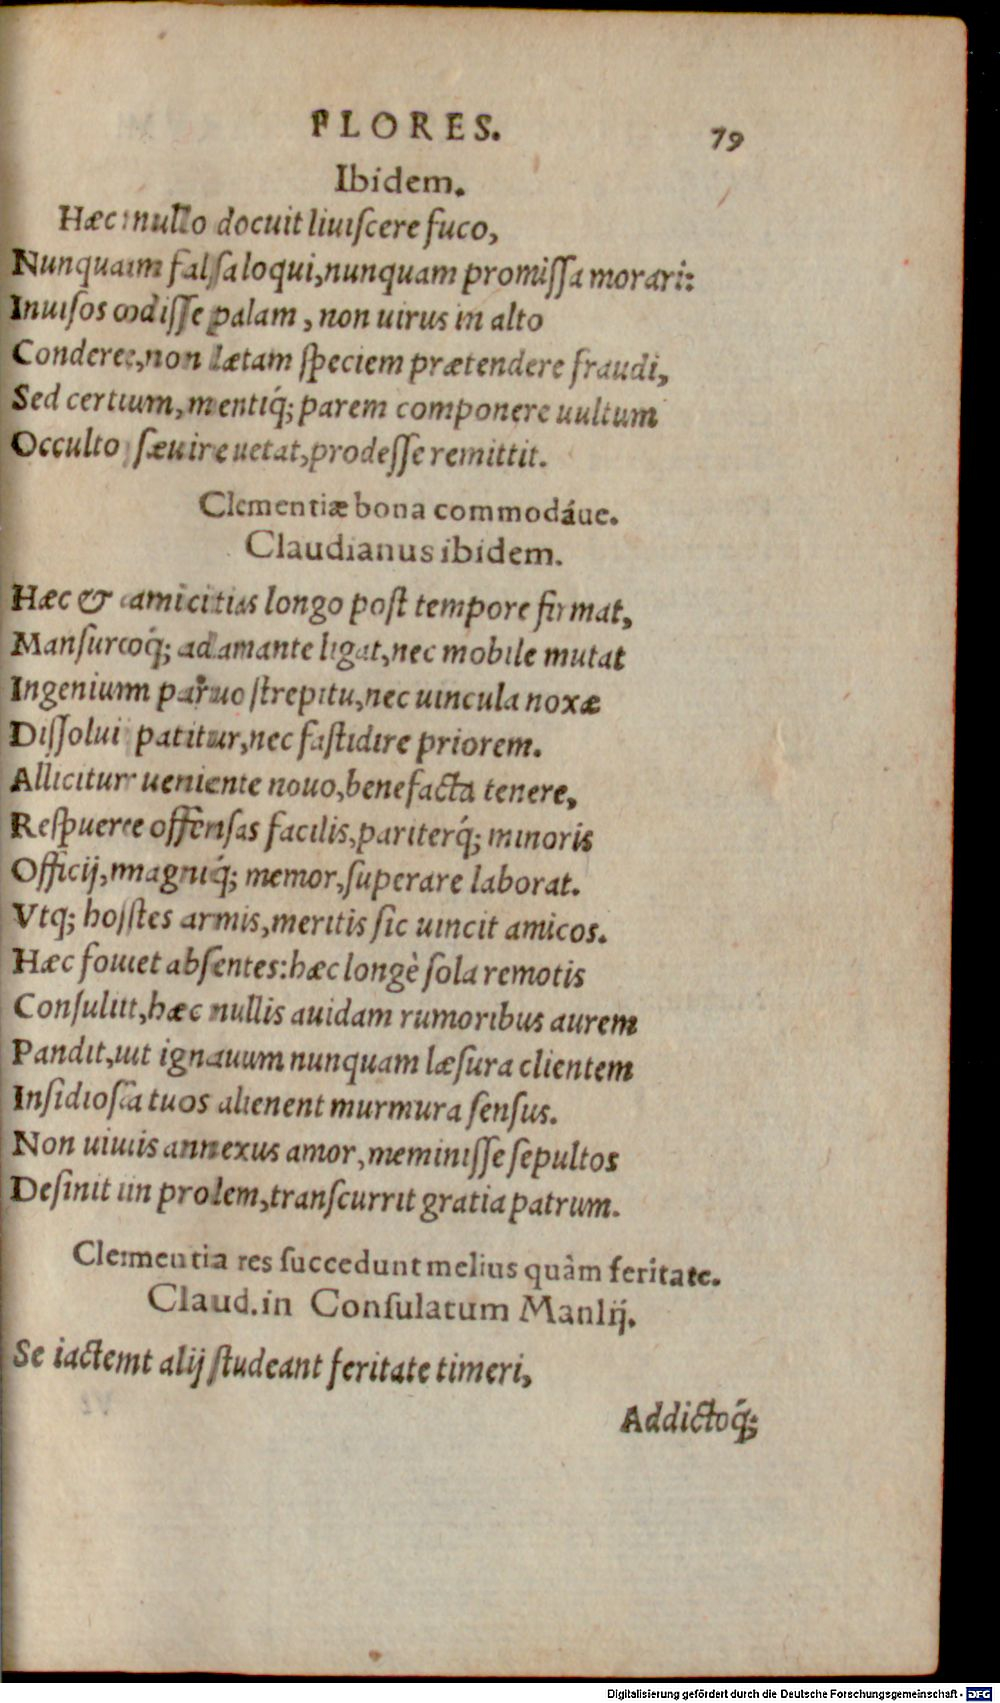 FLORES. 79
Ibidem.
Hæc nullo docuit liuiſcere fuco,
Nunquam falſa loqui, nunquam promiſſa morari:
Inuiſos odiſſe palam, non uirus in alto
Condere, non lætam ſpeciem prætendere fraudi,
Sed certum, mentiq́; parem componere uultum
Occulto ſæuire uetat, prodeſſe remittit.
Clementiæ bona commodáue.
Claudianus ibidem.
Hæc & amicitias longo poſt tempore firmat,
Manſuroq́; adamante ligat, nec mobile mutat
Ingenium paruo ſtrepitu, nec uincula noxæ
Diſſolui patitur, nec faſtidire priorem.
Allicitur ueniente nouo, benefacta tenere,
Reſpuere offenſas facilis, pariterq́; minoris
Officij, magniq́; memor, ſuperare laborat.
Vtq; hoſtes armis, meritis ſic uincit amicos.
Hæc fouet abſentes: hæc longè ſola remotis
Conſulit, hæc nullis auidam rumoribus aurem
Pandit, ut ignauum nunquam læſura clientem
Inſidioſa tuos alienent murmura ſenſus.
Non uiuis annexus amor, meminiſſe ſepultos
Deſinit in prolem, tranſcurrit gratia patrum.
Clementia res ſuccedunt melius quàm feritate.
Claud. in Conſulatum Manlij.
Se iactent alij ſtudeant feritate timeri,
Addictoq́;
Digitalisierung gefördert durch die Deutsche Forschungsgemeinschaft - DFG